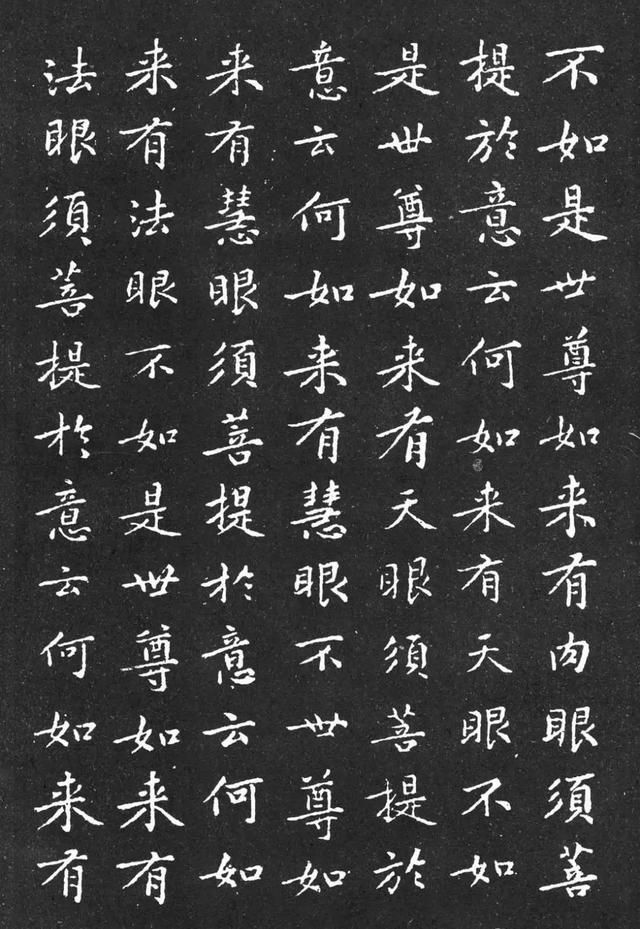 不如是世尊如来有肉眼須菩
提於意云何如来有天眼不如
是世尊如来有天眼須菩提於
意云何如来有慧眼不世尊如
来有慧眼須菩提於意云何如
来有法眼不如是世尊如来有
法眼須菩提於意云何如来有